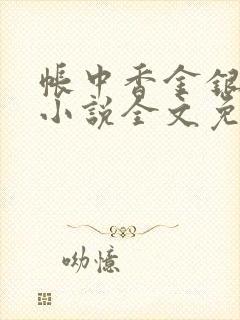 帳中香金銀
小説全文免
呦憶